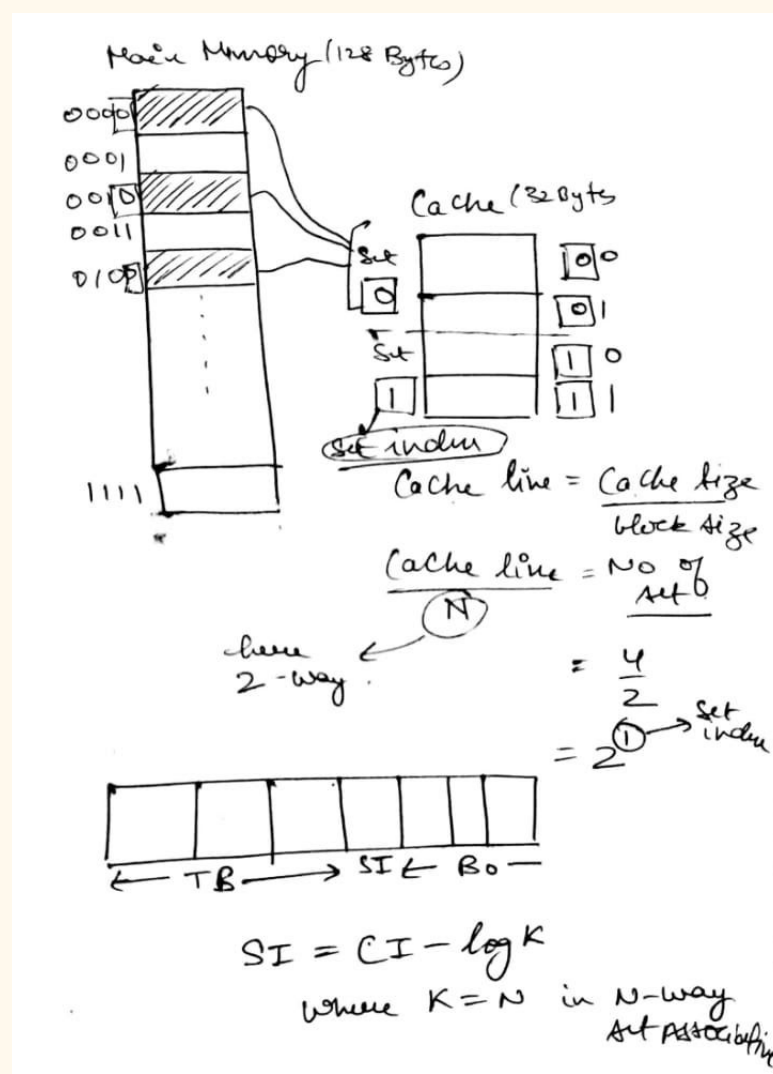 Main Memory (128 Bytes)
0000
0001
0010
0011
0100
1111
Cache (32 Bytes
Set
0
Set
1
00
01
10
11
Set index
Cache line = Cache size
block size
Cache line = No of
N
set
here
2-way.
= 4
2
= 2 1 → set
index
← TB → SI ← Bo —
SI = CI - log K
where K = N in N-way
set Associative